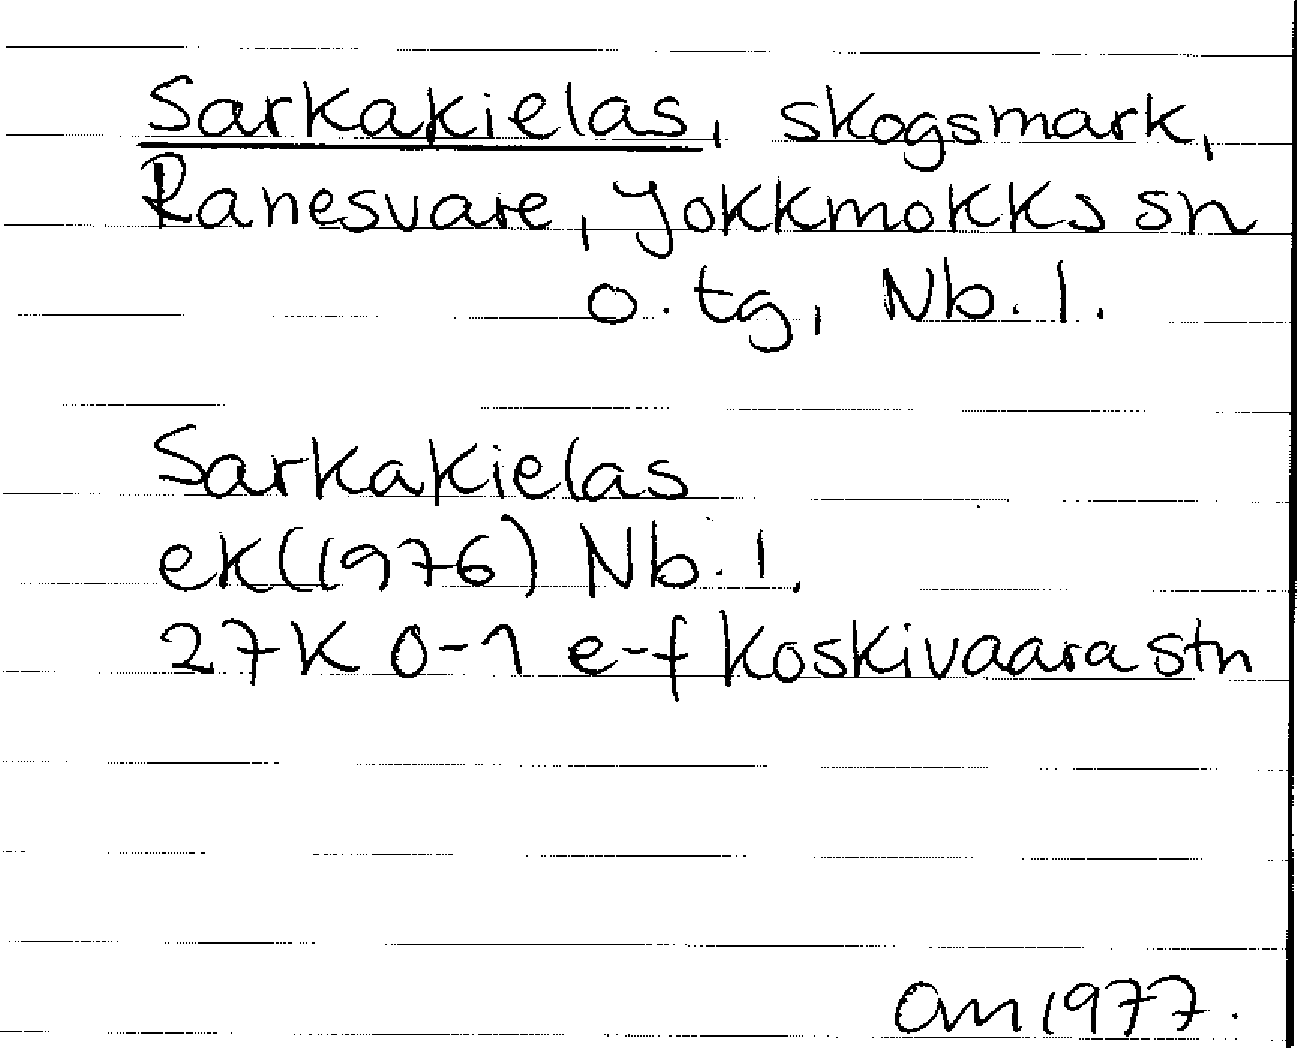 Sarkakielas, skogsmark,
Ranesvare, Jokkmokks sn
o. tg, Nb. l.
Sarkakielas
ek(1976) Nb. l.
27K 0-1 e-f Koskivaara stn
Om 1977.